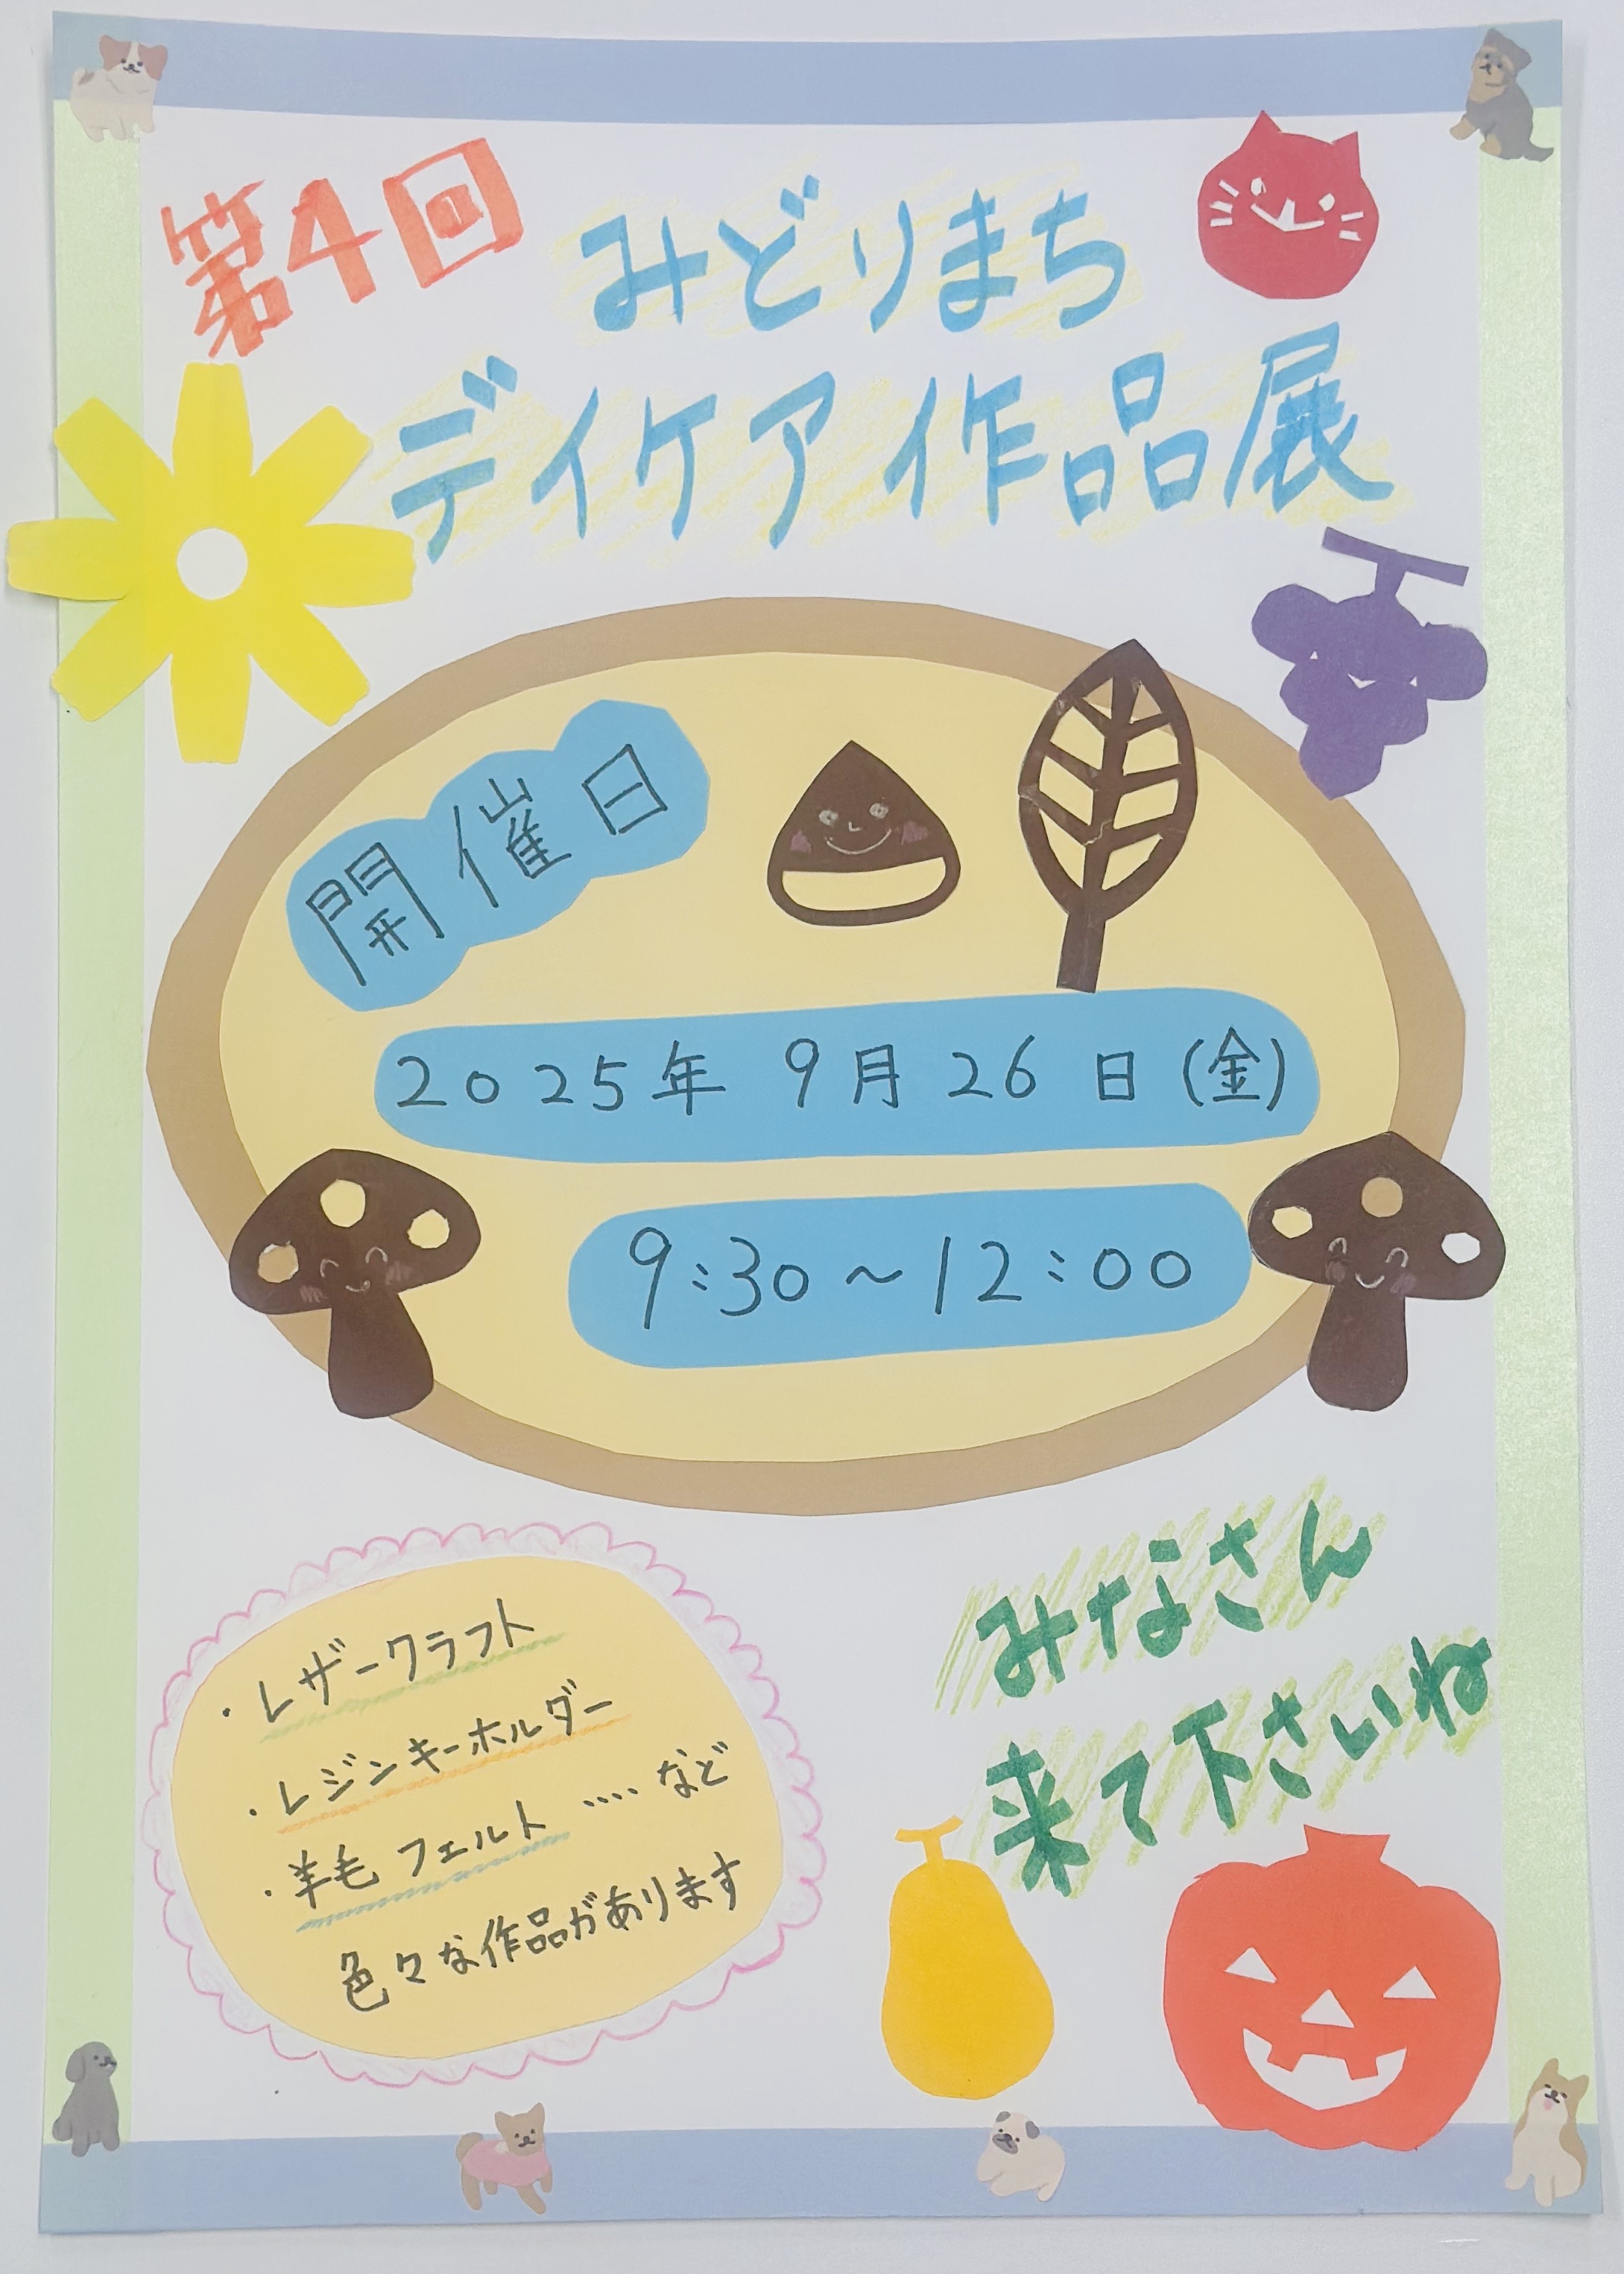 第4回
みどりまち
デイケア作品展
開催日
2025年 9月 26日(金)
9:30～12:00
・レザークラフト
・レジンキーホルダー
・羊毛フェルト ‥‥など
色々な作品があります
みなさん
来て下さいね